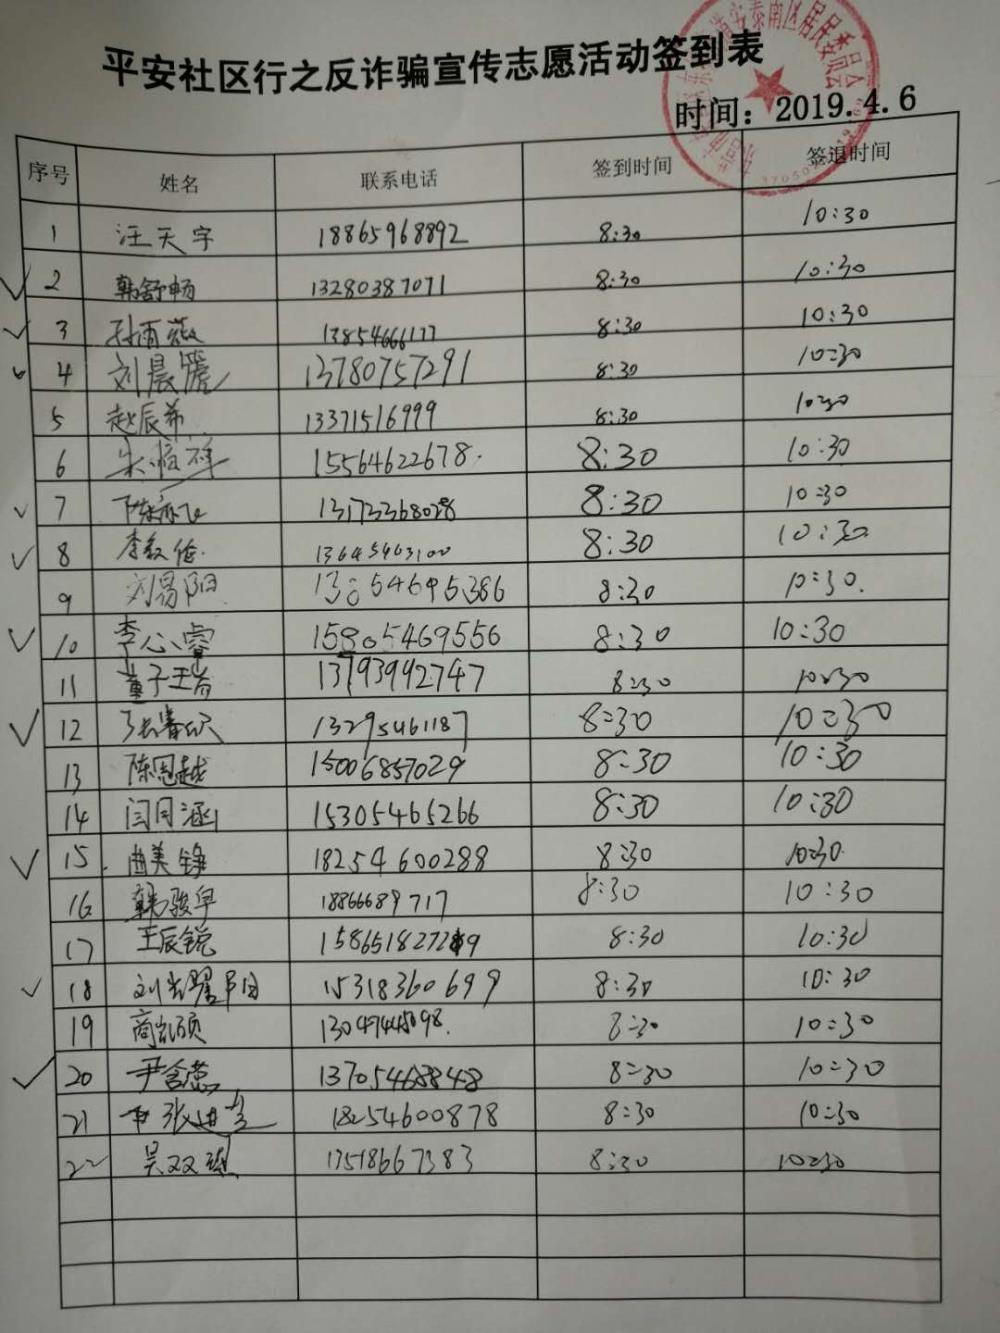 平安社区行之反诈骗宣传志愿活动签到表
时间：2019.4.6
序号 姓名 联系电话 签到时间 签退时间
1 汪天宇 18865968892 8:30 10:30
2 韩舒畅 13280387071 8:30 10:30
3 孙雨薇 13854666177 8:30 10:30
4 刘晨 13780757291 8:30 10:30
5 赵辰希 13371516999 8:30 10:30
6 15564622678. 8:30 10:30
7 8:30 10:30
8 李毅伦. 13645463100 8:30 10:30.
9 刘易阳 8:30 10:30.
10 李心睿 15805469556 8:30 10:30
11 董子 13793992747 8:30 10:30
12 13295461187 8:30 10:30
13 陈恩越 15006857029 8:30 10:30
14 闫月涵 15305465266 8:30 10:30
15. 曲美铮 18254600288 8:30 10:30.
16 韩骏早 18866689717 8:30 10:30
17 王辰锐 8:30 10:30
18 15318360699 8:30 10:30
19 商凯硕 8:30 10:30
20 尹含蕊 13705468848 8:30 10:30
21 18254600878 8:30 10:30
22 17518667383 8:30 10:30